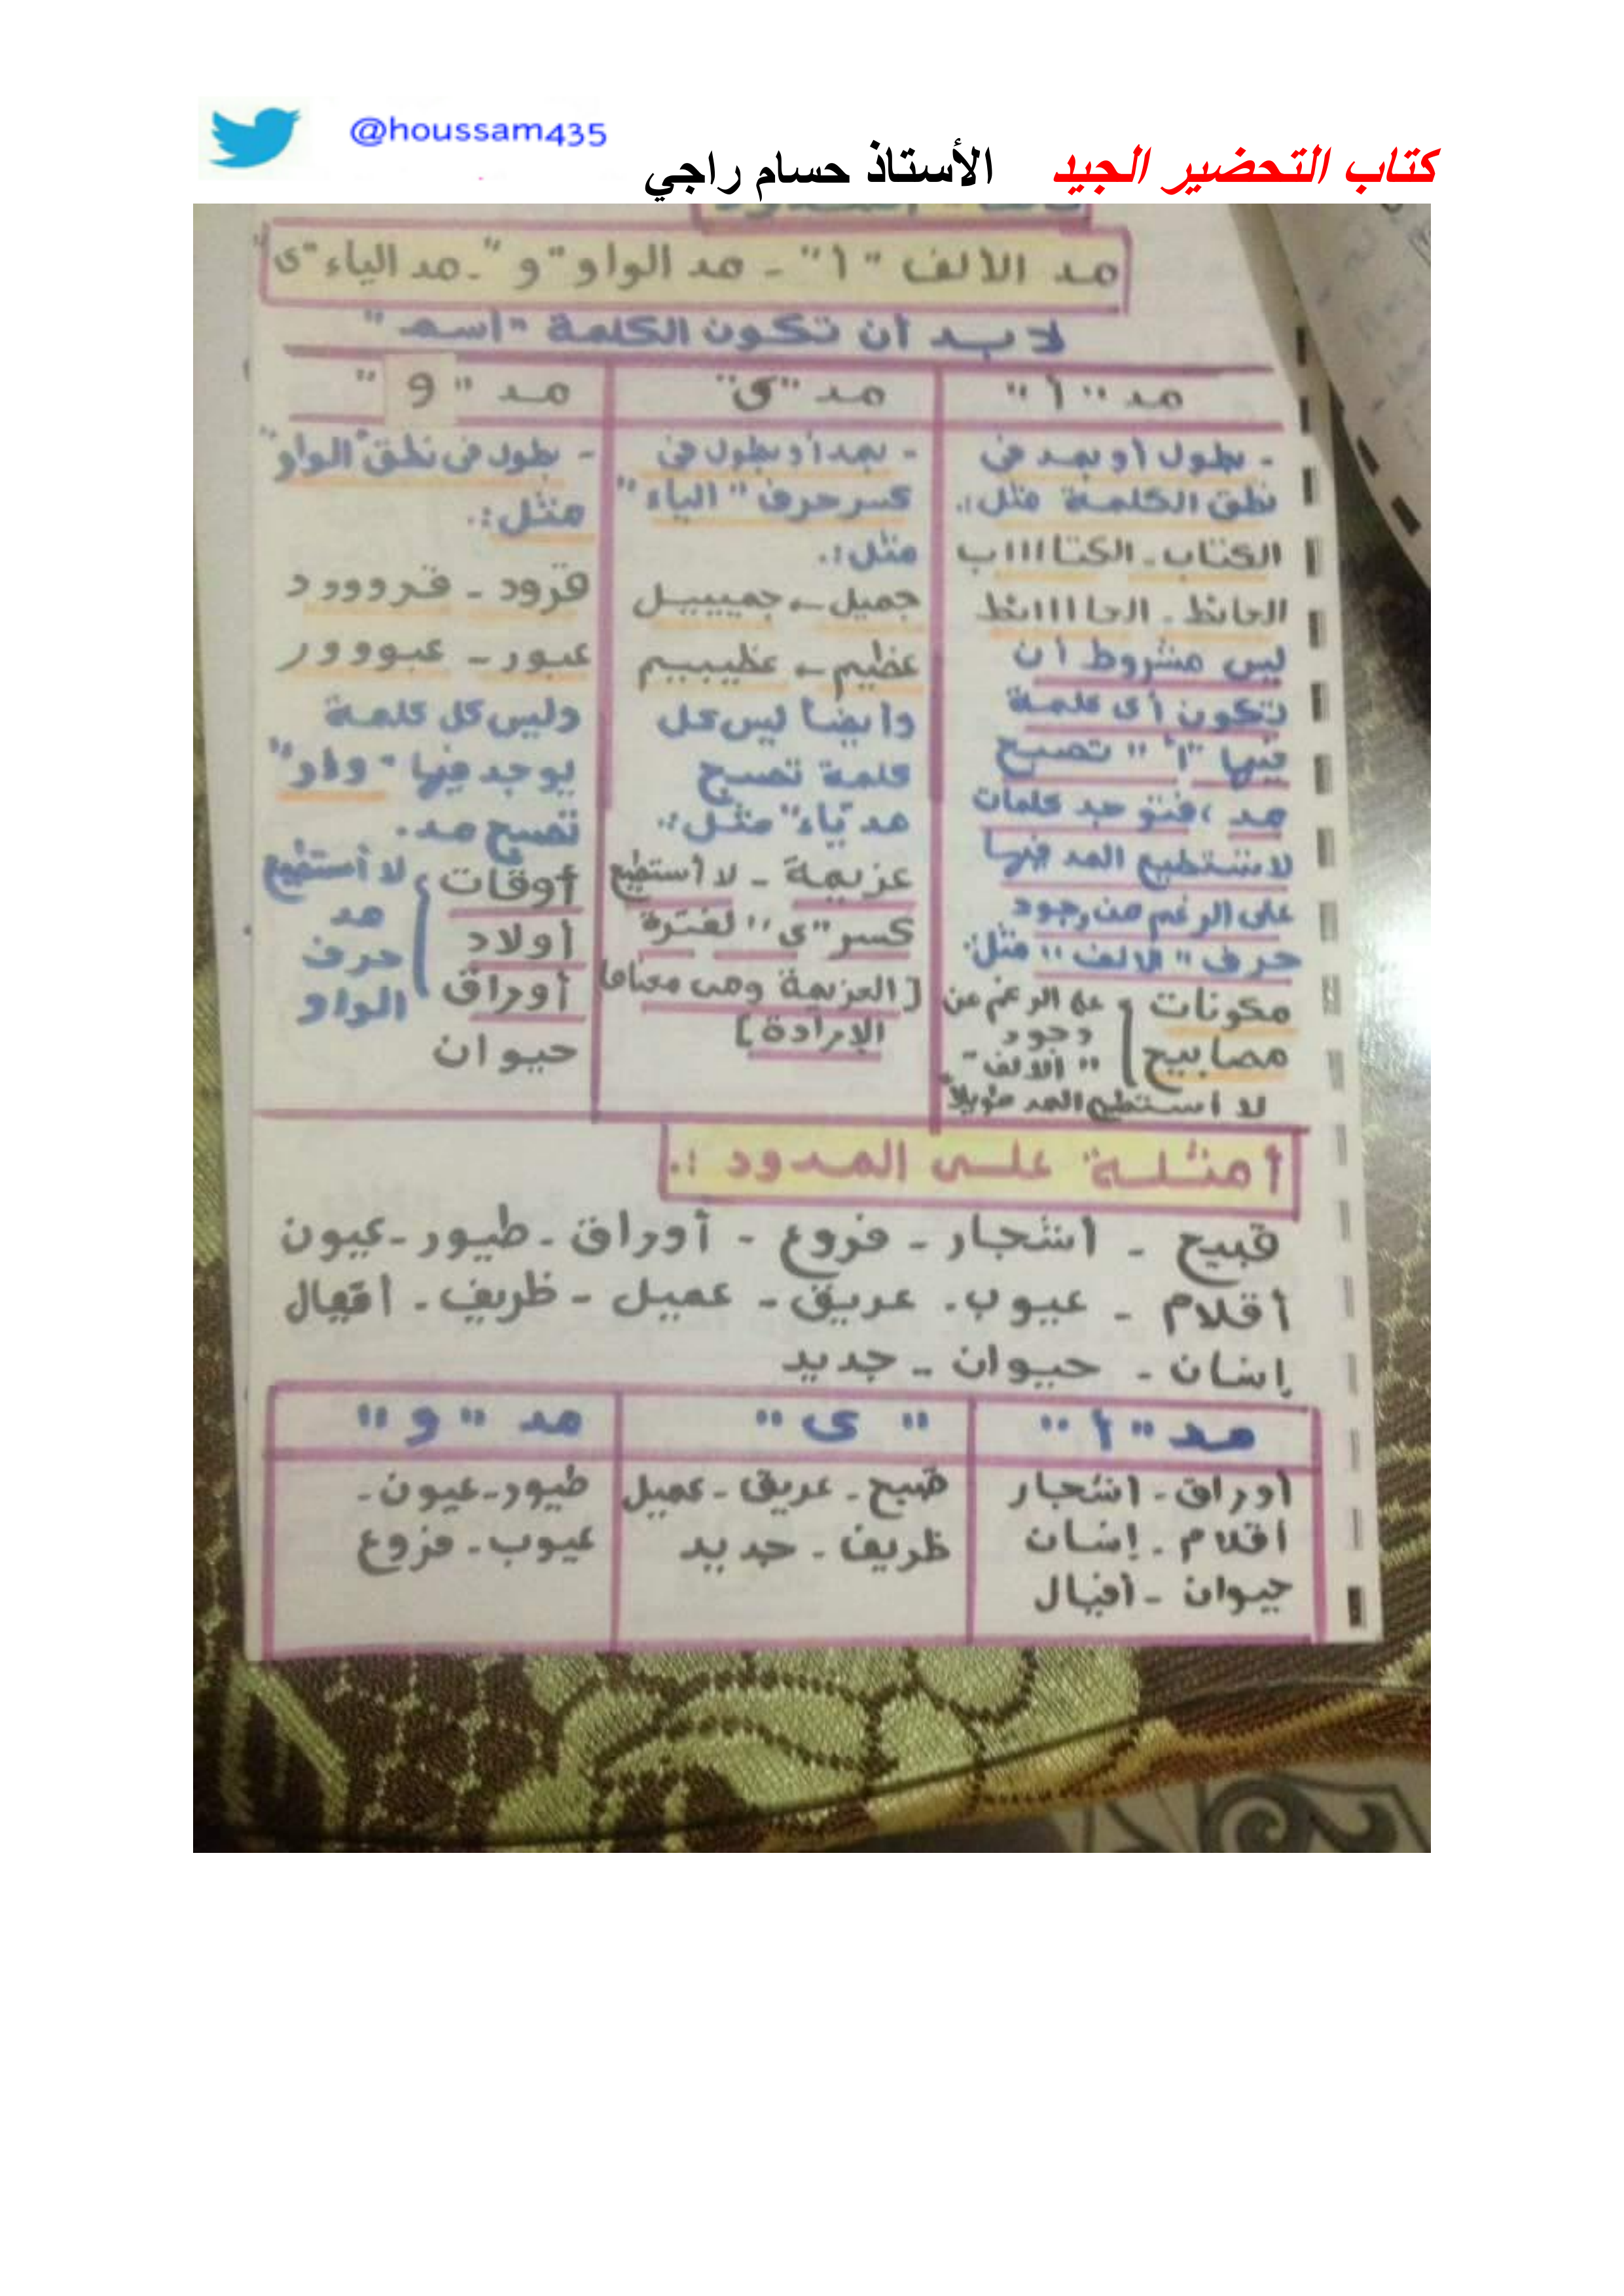 @houssam435
كتاب التحضير الجيد الأستاذ حسام راجي
مد الألف "ا" - مد الواو "و" - مد الياء "ى"
لابد أن تكون الكلمة "اسم"
مد "ا"
- بطول أو بمد فى
نطق الكلمة مثل:.
الكتاب - الكتاااااب
الحائط - الحااااائط
ليس مشروط أن
تكون أى كلمة
فيها "ا" تصبح
مد، فتوجد كلمات
لا نستطيع المد فيها
على الرغم من وجود
حرف "الالف" مثل:
مكونات
مصابيح
على الرغم من
وجود
"الالف"
لا أستطيع المد طويلاً
مد "ى"
- بمد أو بطول فى
كسر حرف "الياء"
مثل:.
جميل ← جمييييل
عظيم ← عظيييم
وأيضاً ليس كل
كلمة تصبح
مد "ياء" مثل:.
عزيمة - لا أستطيع
كسر "ى" لفترة
[العزيمة وهى معناها
الإرادة]
مد "و"
- بطول فى نطق "الواو"
مثل:.
قرود - قروووود
عبور - عبوووور
وليس كل كلمة
يوجد فيها "واو"
تصبح مد.
أوقات
أولاد
أوراق
حيوان
لا أستطيع
مد
حرف
الواو
أمثلة على المدود :.
قبيح - أشجار - فروع - أوراق - طيور - عيون
أقلام - عيوب - عريق - عميل - ظريف - أفيال
إنسان - حيوان - جديد
مد "ا"
أوراق - أشجار
أقلام - إنسان
حيوان - أفيال
"ى"
قبيح - عريق - عميل
ظريف - جديد
مد "و"
طيور - عيون -
عيوب - فروع